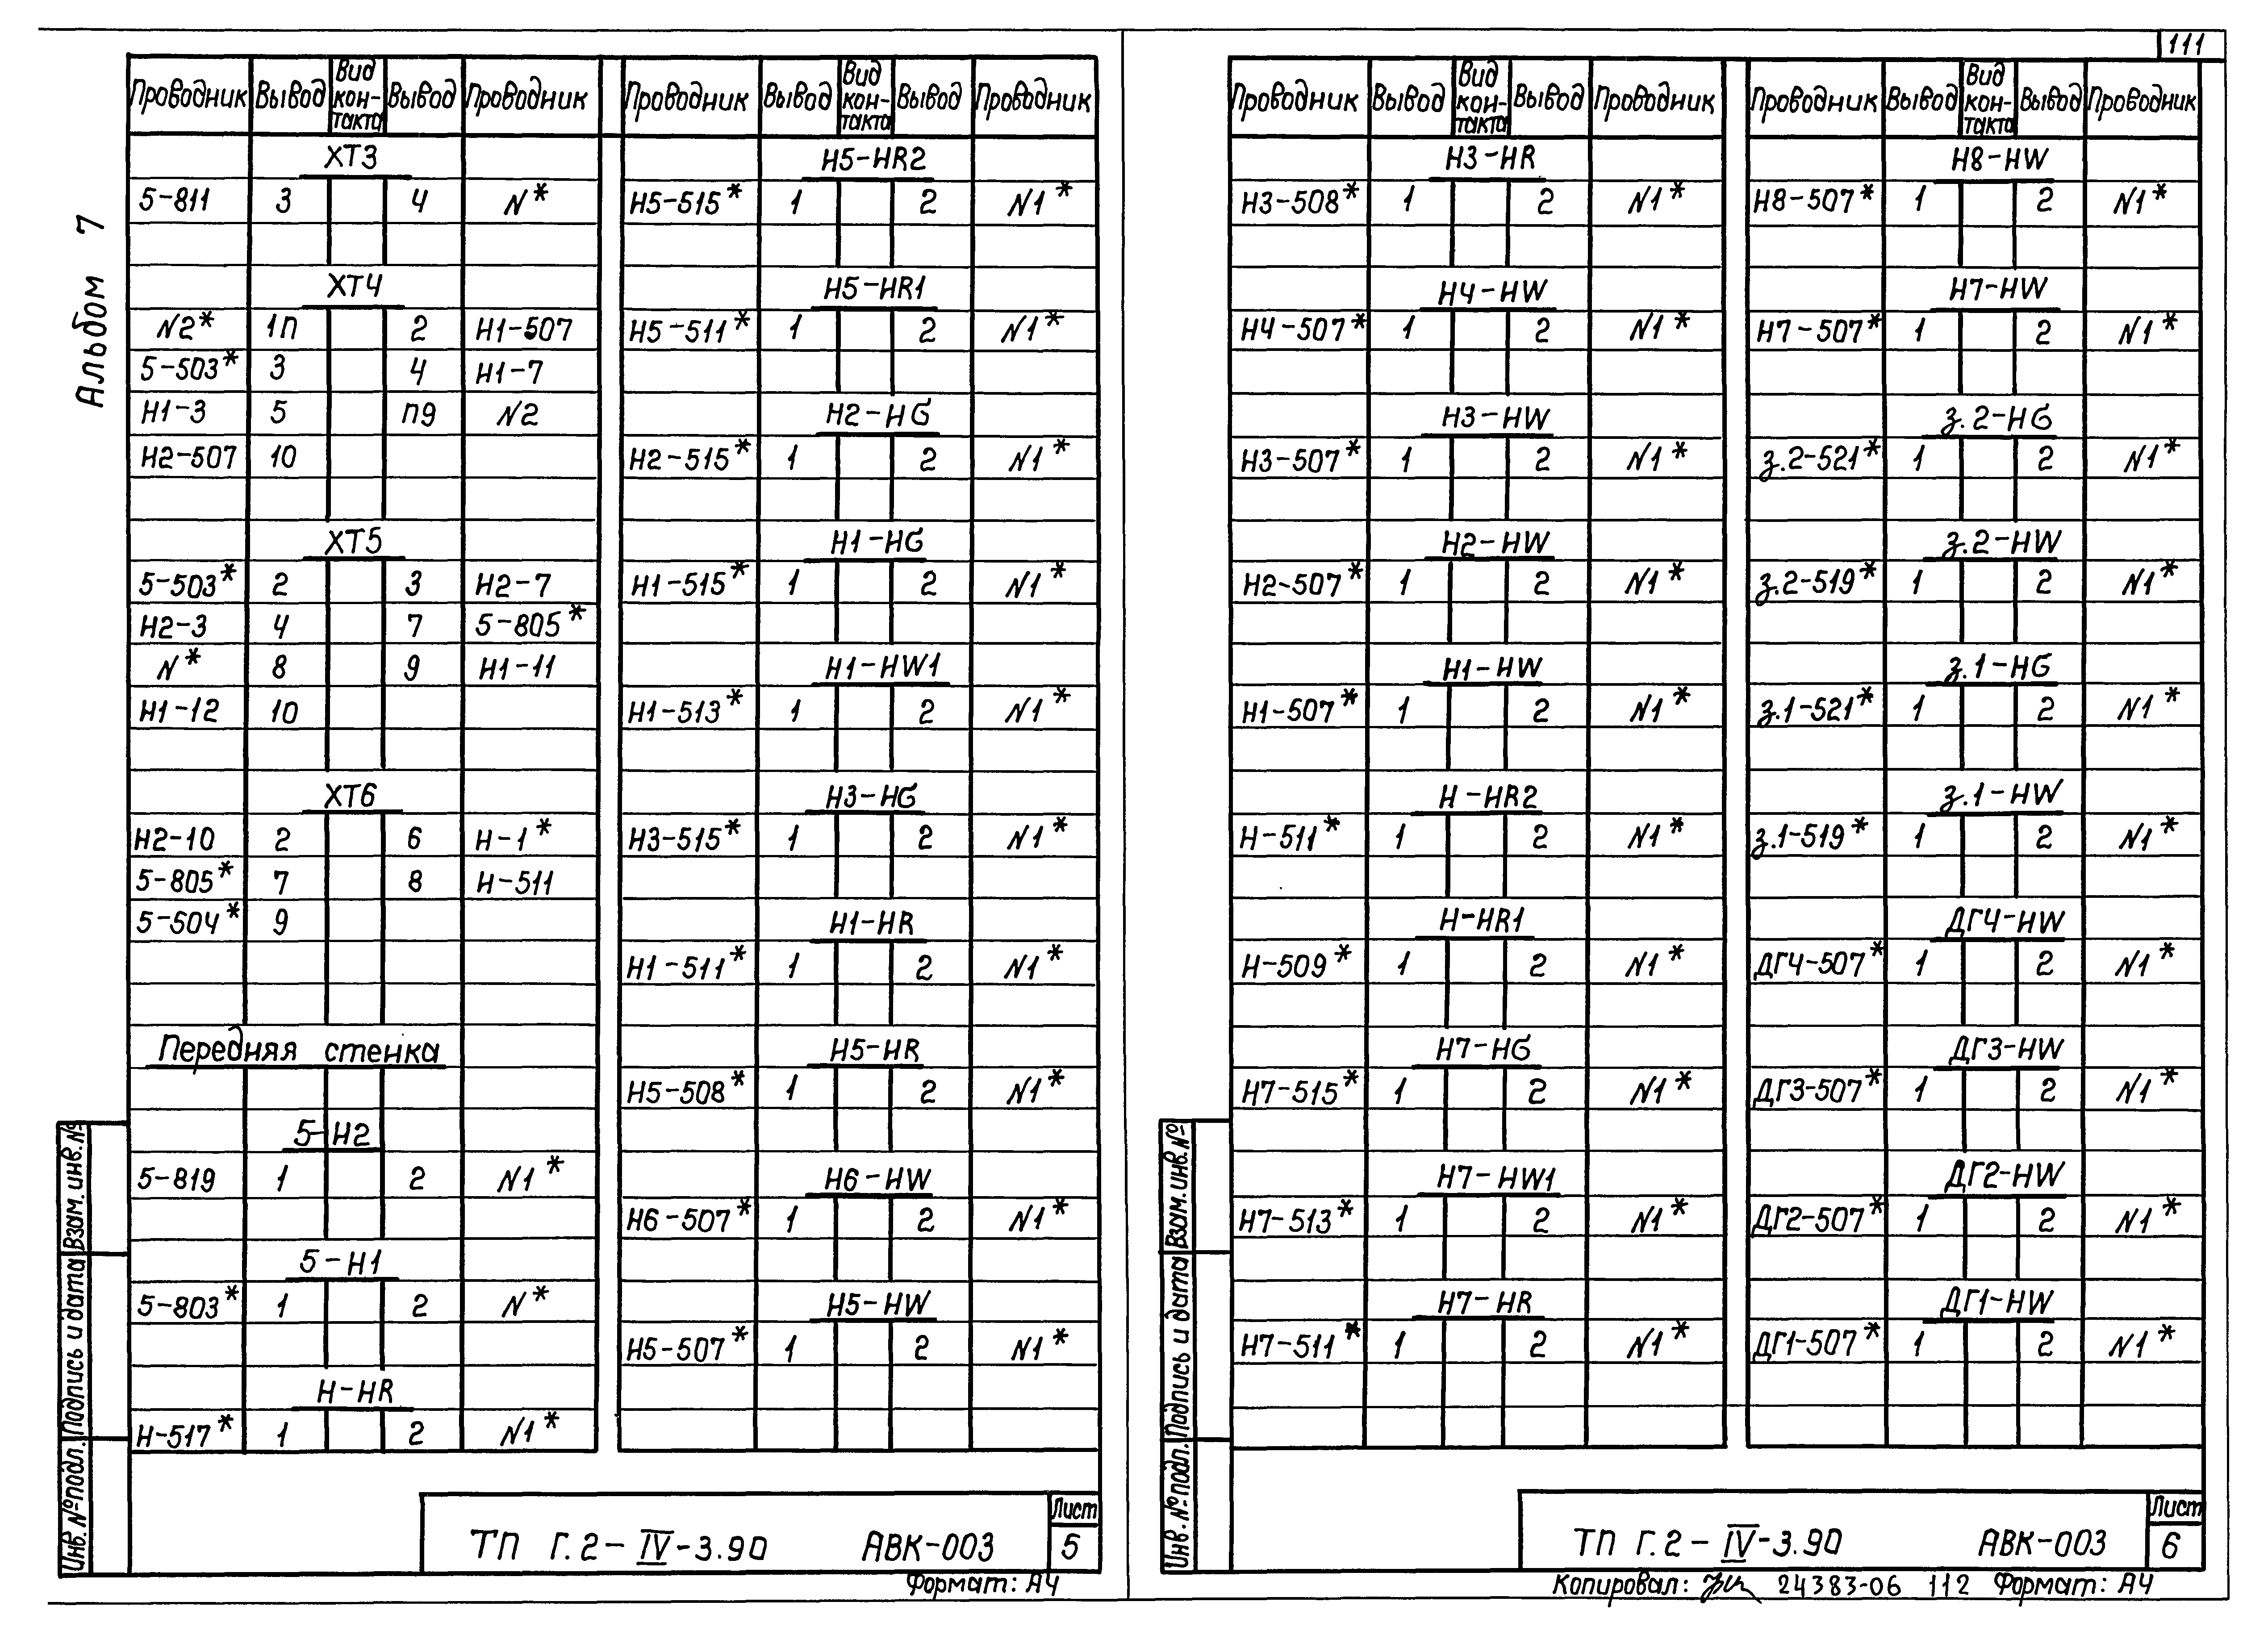 111
Альбом 7
Проводник Вывод Вид кон-такта Вывод Проводник
ХТ3
5-811 3 4 N*
ХТ4
N2* 1П 2 Н1-507
5-503* 3 4 Н1-7
Н1-3 5 П9 N2
Н2-507 10
ХТ5
5-503* 2 3 Н2-7
Н2-3 4 7 5-805*
N* 8 9 Н1-11
Н1-12 10
ХТ6
Н2-10 2 6 Н-1*
5-805* 7 8 Н-511
5-504* 9
Передняя стенка
5-Н2
5-819 1 2 N1*
5-Н1
5-803* 1 2 N*
Н-HR
Н-517* 1 2 N1*
Проводник Вывод Вид кон-такта Вывод Проводник
Н5-HR2
Н5-515* 1 2 N1*
Н5-HR1
Н5-511* 1 2 N1*
Н2-HG
Н2-515* 1 2 N1*
Н1-HG
Н1-515* 1 2 N1*
Н1-HW1
Н1-513* 1 2 N1*
Н3-HG
Н3-515* 1 2 N1*
Н1-HR
Н1-511* 1 2 N1*
Н5-HR
Н5-508* 1 2 N1*
Н6-HW
Н6-507* 1 2 N1*
Н5-HW
Н5-507* 1 2 N1*
Инв. № подл. Подпись и дата Взам. инв. №
ТП Г.2-IV-3.90 АВК-003
Лист
5
Формат: А4
Проводник Вывод Вид кон-такта Вывод Проводник
Н3-HR
Н3-508* 1 2 N1*
Н4-HW
Н4-507* 1 2 N1*
Н3-HW
Н3-507* 1 2 N1*
Н2-HW
Н2-507* 1 2 N1*
Н1-HW
Н1-507* 1 2 N1*
Н-HR2
Н-511* 1 2 N1*
Н-HR1
Н-509* 1 2 N1*
Н7-HG
Н7-515* 1 2 N1*
Н7-HW1
Н7-513* 1 2 N1*
Н7-HR
Н7-511* 1 2 N1*
Проводник Вывод Вид кон-такта Вывод Проводник
Н8-HW
Н8-507* 1 2 N1*
Н7-HW
Н7-507* 1 2 N1*
з.2-HG
з.2-521* 1 2 N1*
з.2-HW
з.2-519* 1 2 N1*
з.1-HG
з.1-521* 1 2 N1*
з.1-HW
з.1-519* 1 2 N1*
ДГ4-HW
ДГ4-507* 1 2 N1*
ДГ3-HW
ДГ3-507* 1 2 N1*
ДГ2-HW
ДГ2-507* 1 2 N1*
ДГ1-HW
ДГ1-507* 1 2 N1*
Инв. № подл. Подпись и дата Взам. инв. №
ТП Г.2-IV-3.90 АВК-003
Лист
6
Копировал: 24383-06 112 Формат: А4